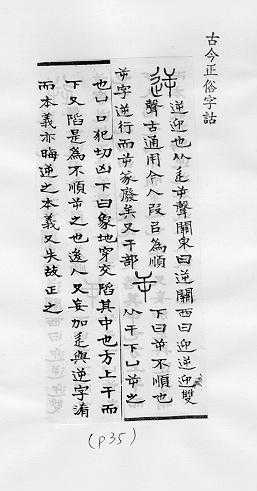 古今正俗字詁
逆迎也从辵屰聲關東曰逆關西曰迎逆迎雙
聲古通用今人叚㠯為順
屰字逆行而屰篆廢矣又干部
屰
下曰屰不順也
从干下凵屰之
也凵口犯切凶下曰象地穿交陷其中也方上干而
下又陷是為不順屰之也後人又妄加辵與逆字淆
而本義亦晦逆之本義又失故正之
(P35)